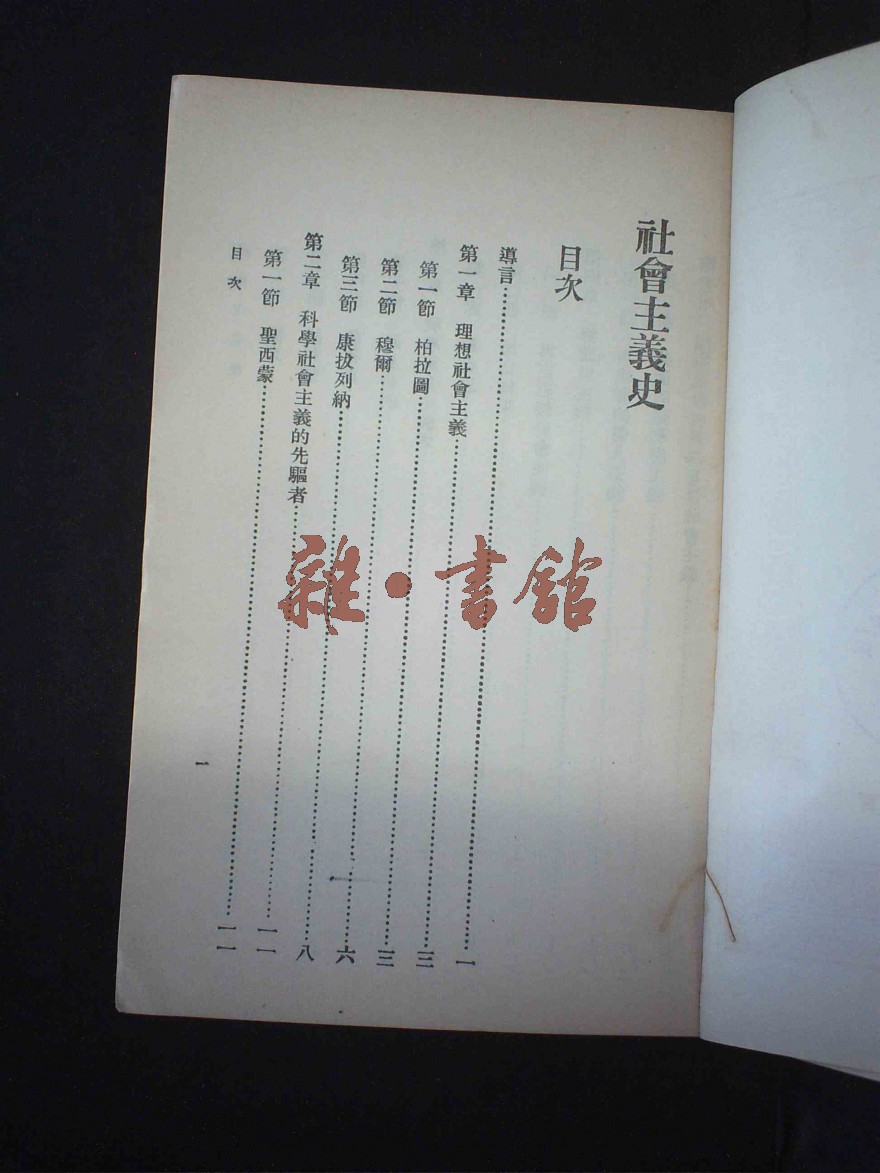 社會主義史
目次
導言……一
第一章 理想社會主義……三
第一節 柏拉圖……三
第二節 穆爾……六
第三節 康拔列納……八
第二章 科學社會主義的先驅者……一一
第一節 聖西蒙……一一
目次 一
雜·書館